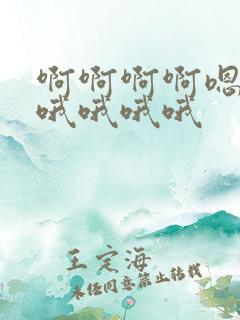 啊啊啊啊嗯
哦哦哦哦
王定海
未经同意禁止转载